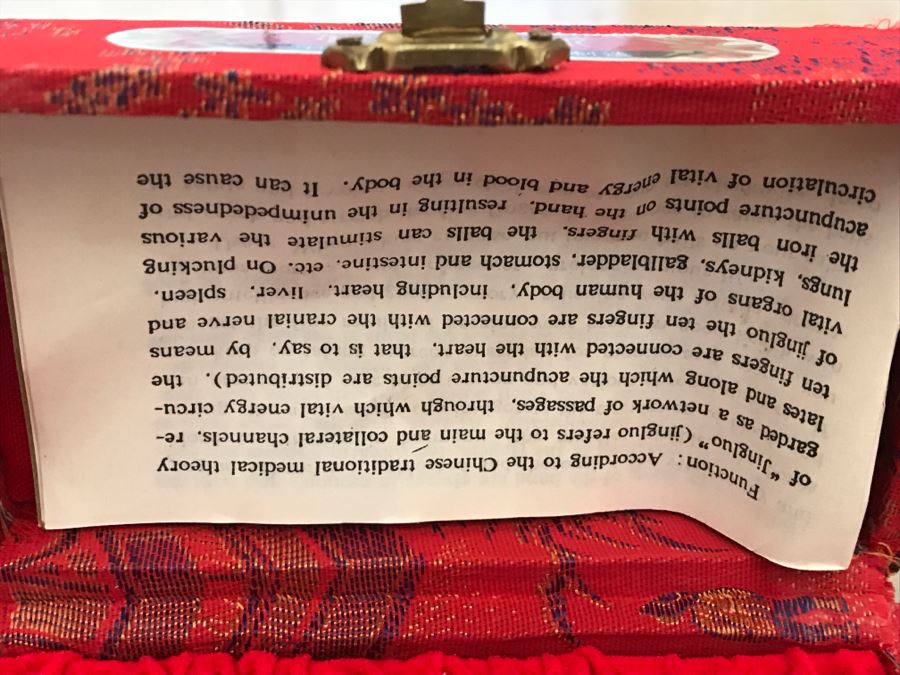 Function: According to the Chinese traditional medical theory
of "Jingluo" (jingluo refers to the main and collateral channels, re-
garded as a network of passages, through which vital energy circu-
lates and along which the acupuncture points are distributed). the
ten fingers are connected with the heart, that is to say, by means
of jingluo the ten fingers are connected with the cranial nerve and
vital organs of the human body, including heart, liver, spleen,
lungs, kidneys, gallbladder, stomach and intestine. etc. On plucking
the iron balls with fingers, the balls can stimulate the various
acupuncture points on the hand, resulting in the unimpededness of
circulation of vital energy and blood in the body. It can cause the